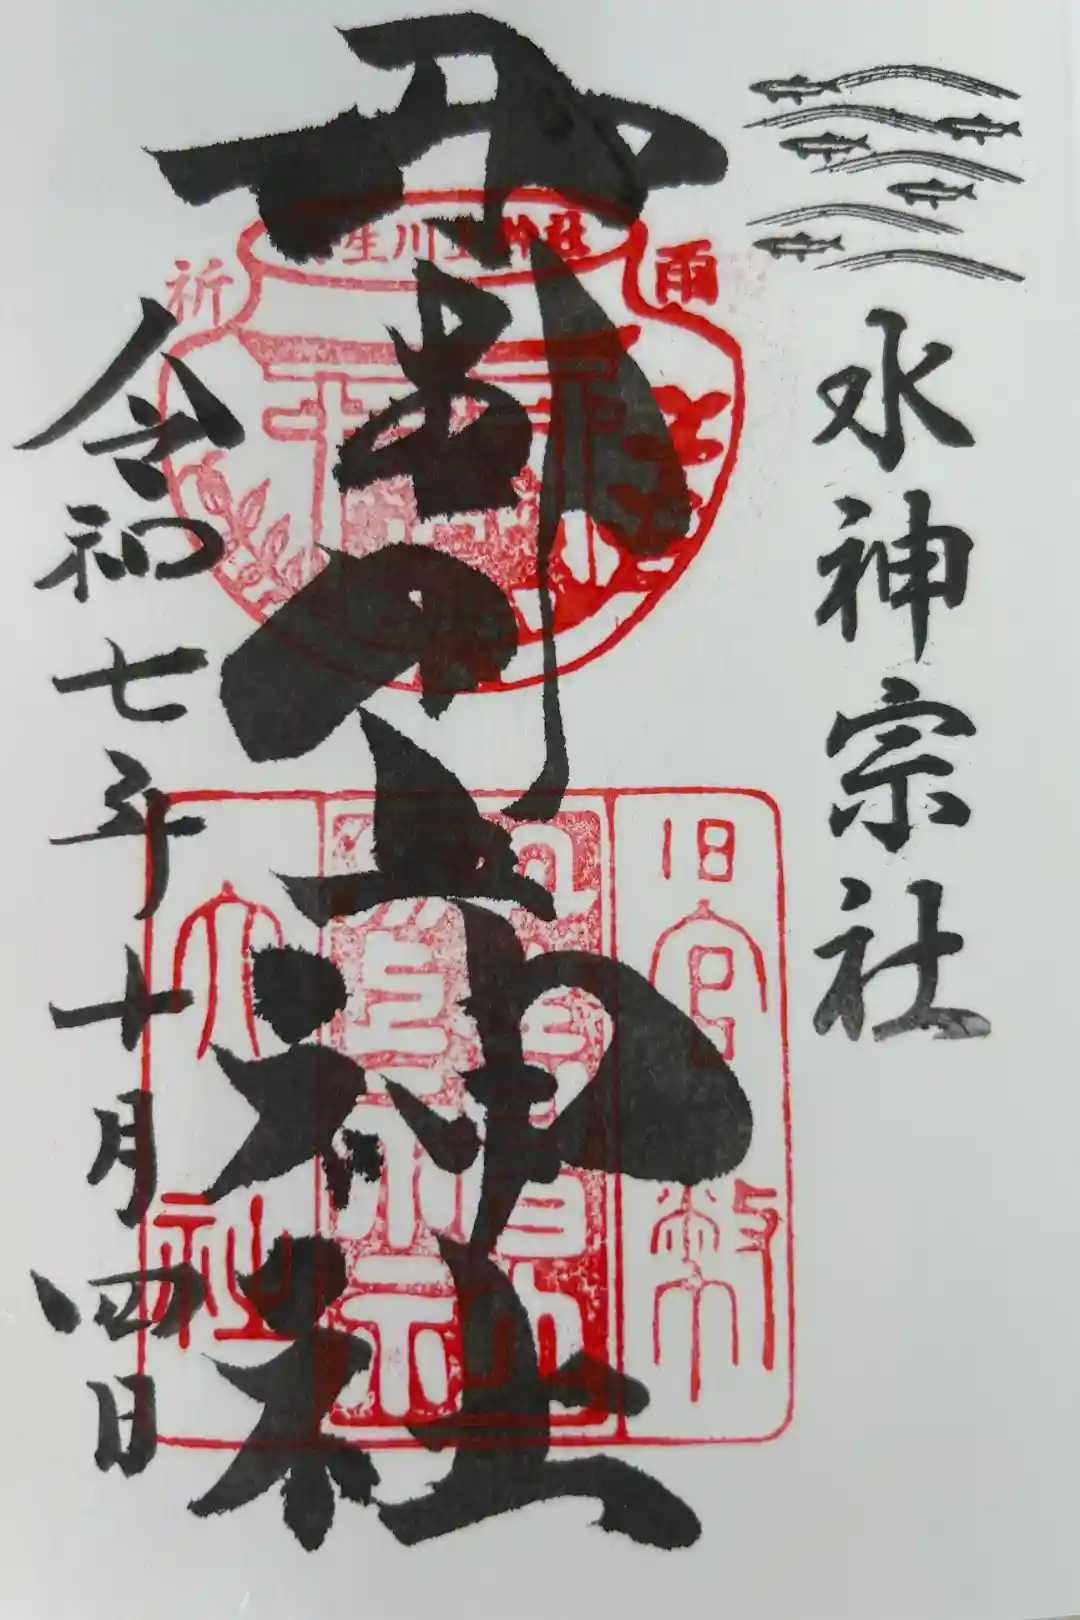 水神宗社
丹生川上神社
令和七年十月四日
祈
雨
生川上神社
旧官幣
大社